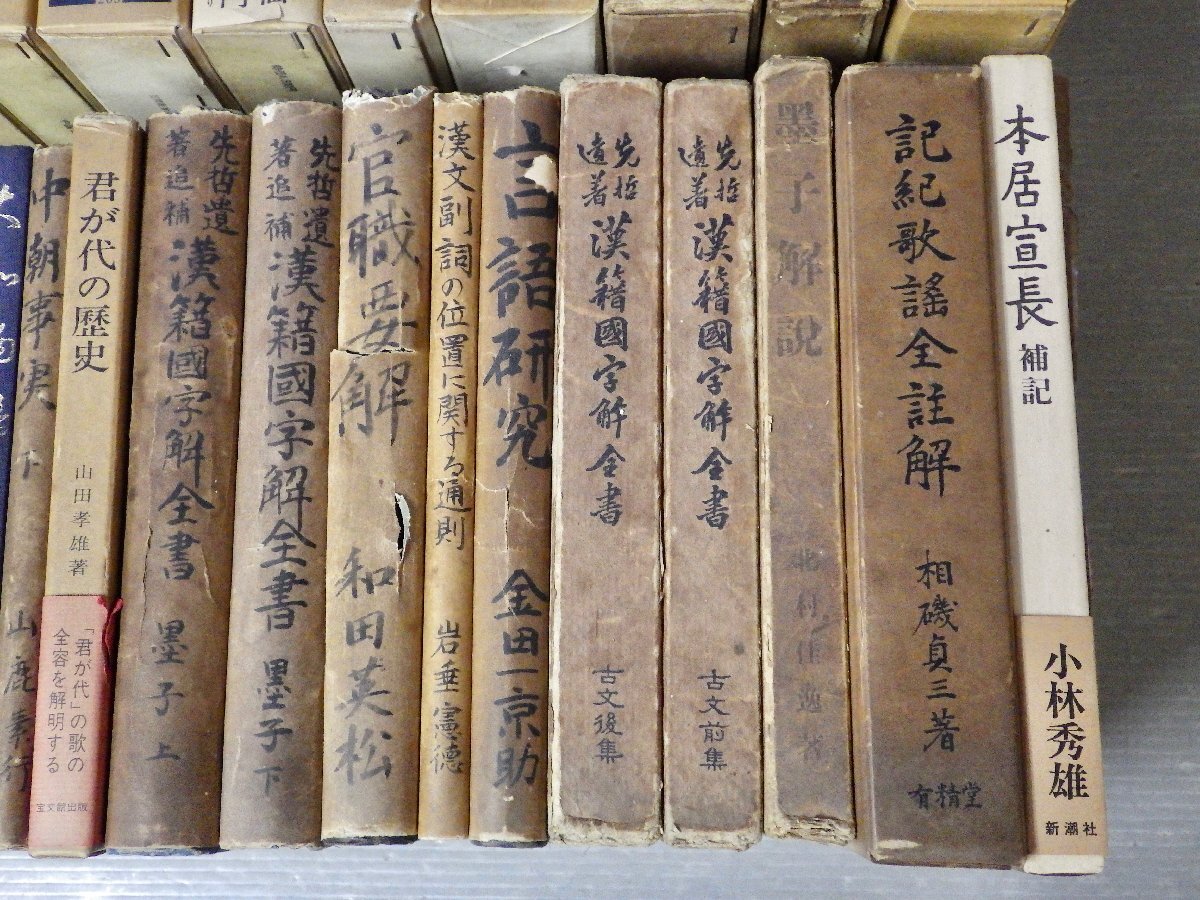 中朝事実 下
山鹿素行
君が代の歴史
山田孝雄著
「君が代」の歌の
全容を解明する
宝文館出版
先哲遺
著追補
漢籍國字解全書
墨子 上
先哲遺
著追補
漢籍國字解全書
墨子 下
官職要解
和田英松
漢文副詞の位置に関する通則
岩垂憲德
言語研究
金田一京助
先哲
遺著
漢籍國字解全書
古文後集
先哲
遺著
漢籍國字解全書
古文前集
墨子解説
記紀歌謠全註解
相磯貞三著
有精堂
本居宣長 補記
小林秀雄
新潮社